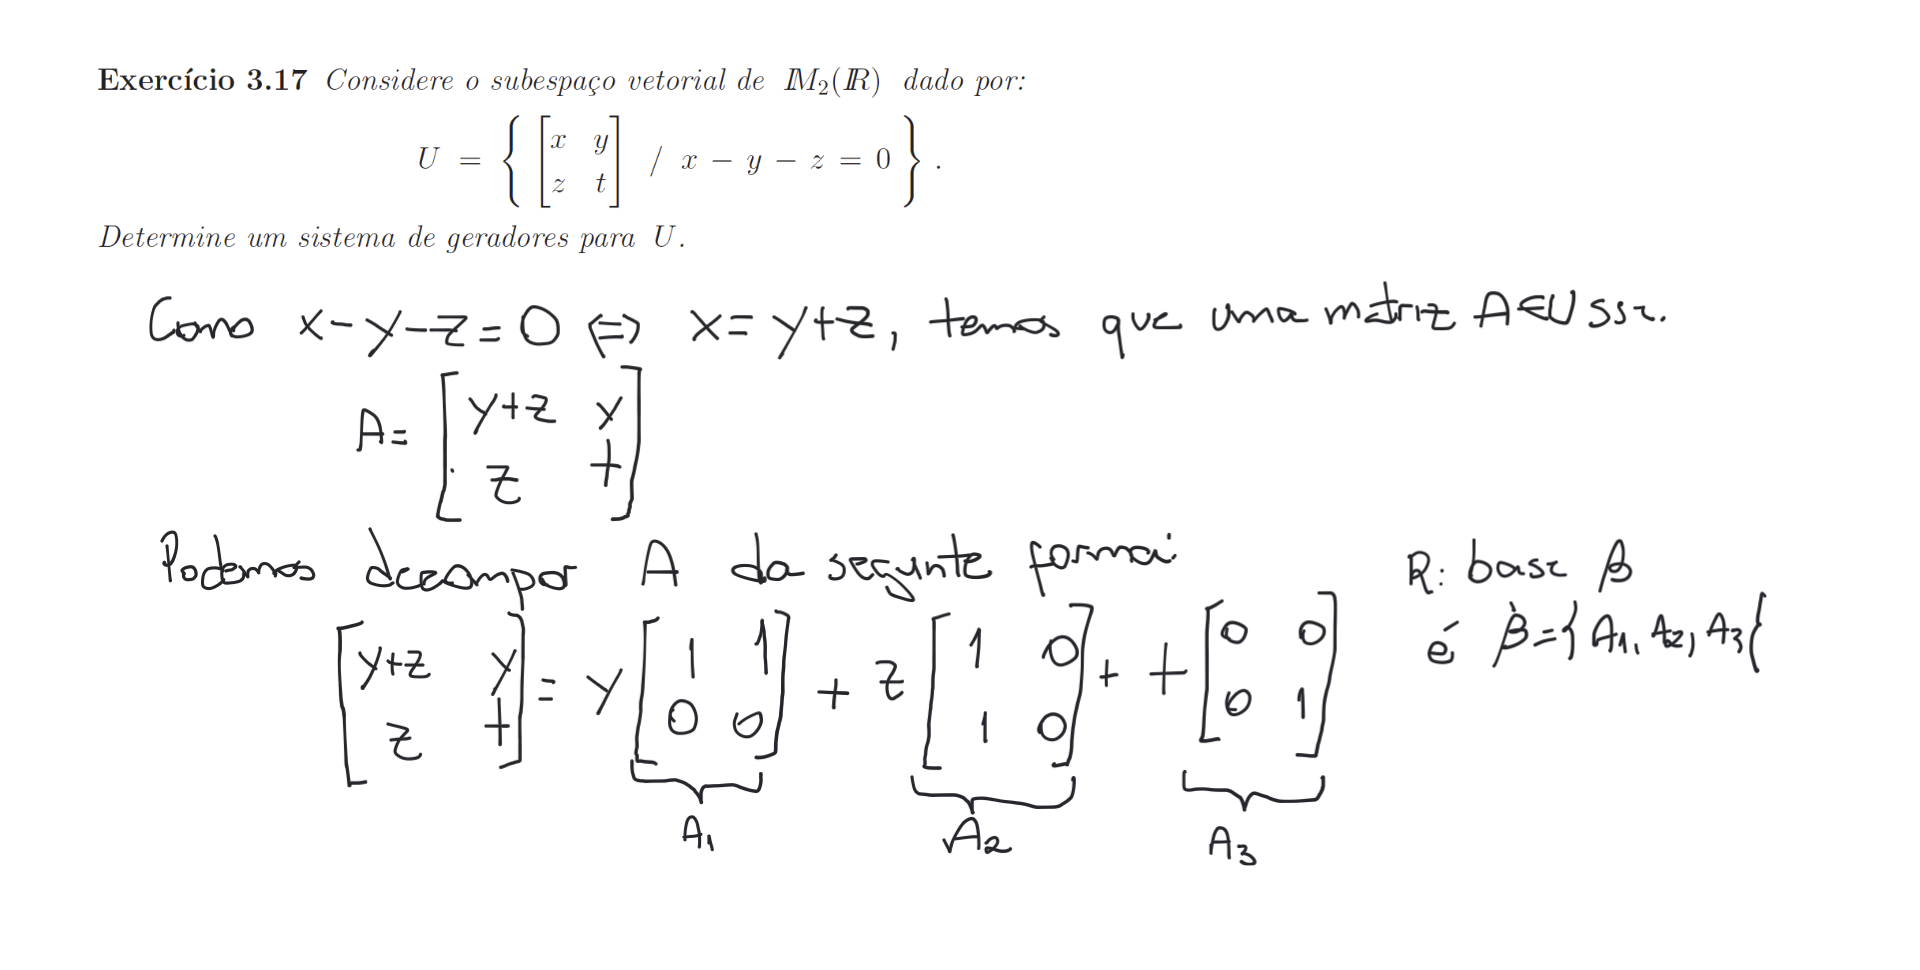 Exercício 3.17 Considere o subespaço vetorial de M₂(ℝ) dado por:
U = { [ x y ; z t ] / x − y − z = 0 } .
Determine um sistema de geradores para U.
Como x-y-z=0 ⇔ x=y+z, temos que uma matriz A∈U sse.
A= [ y+z y ; z t ]
Podemos decompor A da segunte forma:
[ y+z y ; z t ] = y [ 1 1 ; 0 0 ] + z [ 1 0 ; 1 0 ] + t [ 0 0 ; 0 1 ]
A₁ A₂ A₃
R: base β
é β={ A₁, A₂, A₃ {